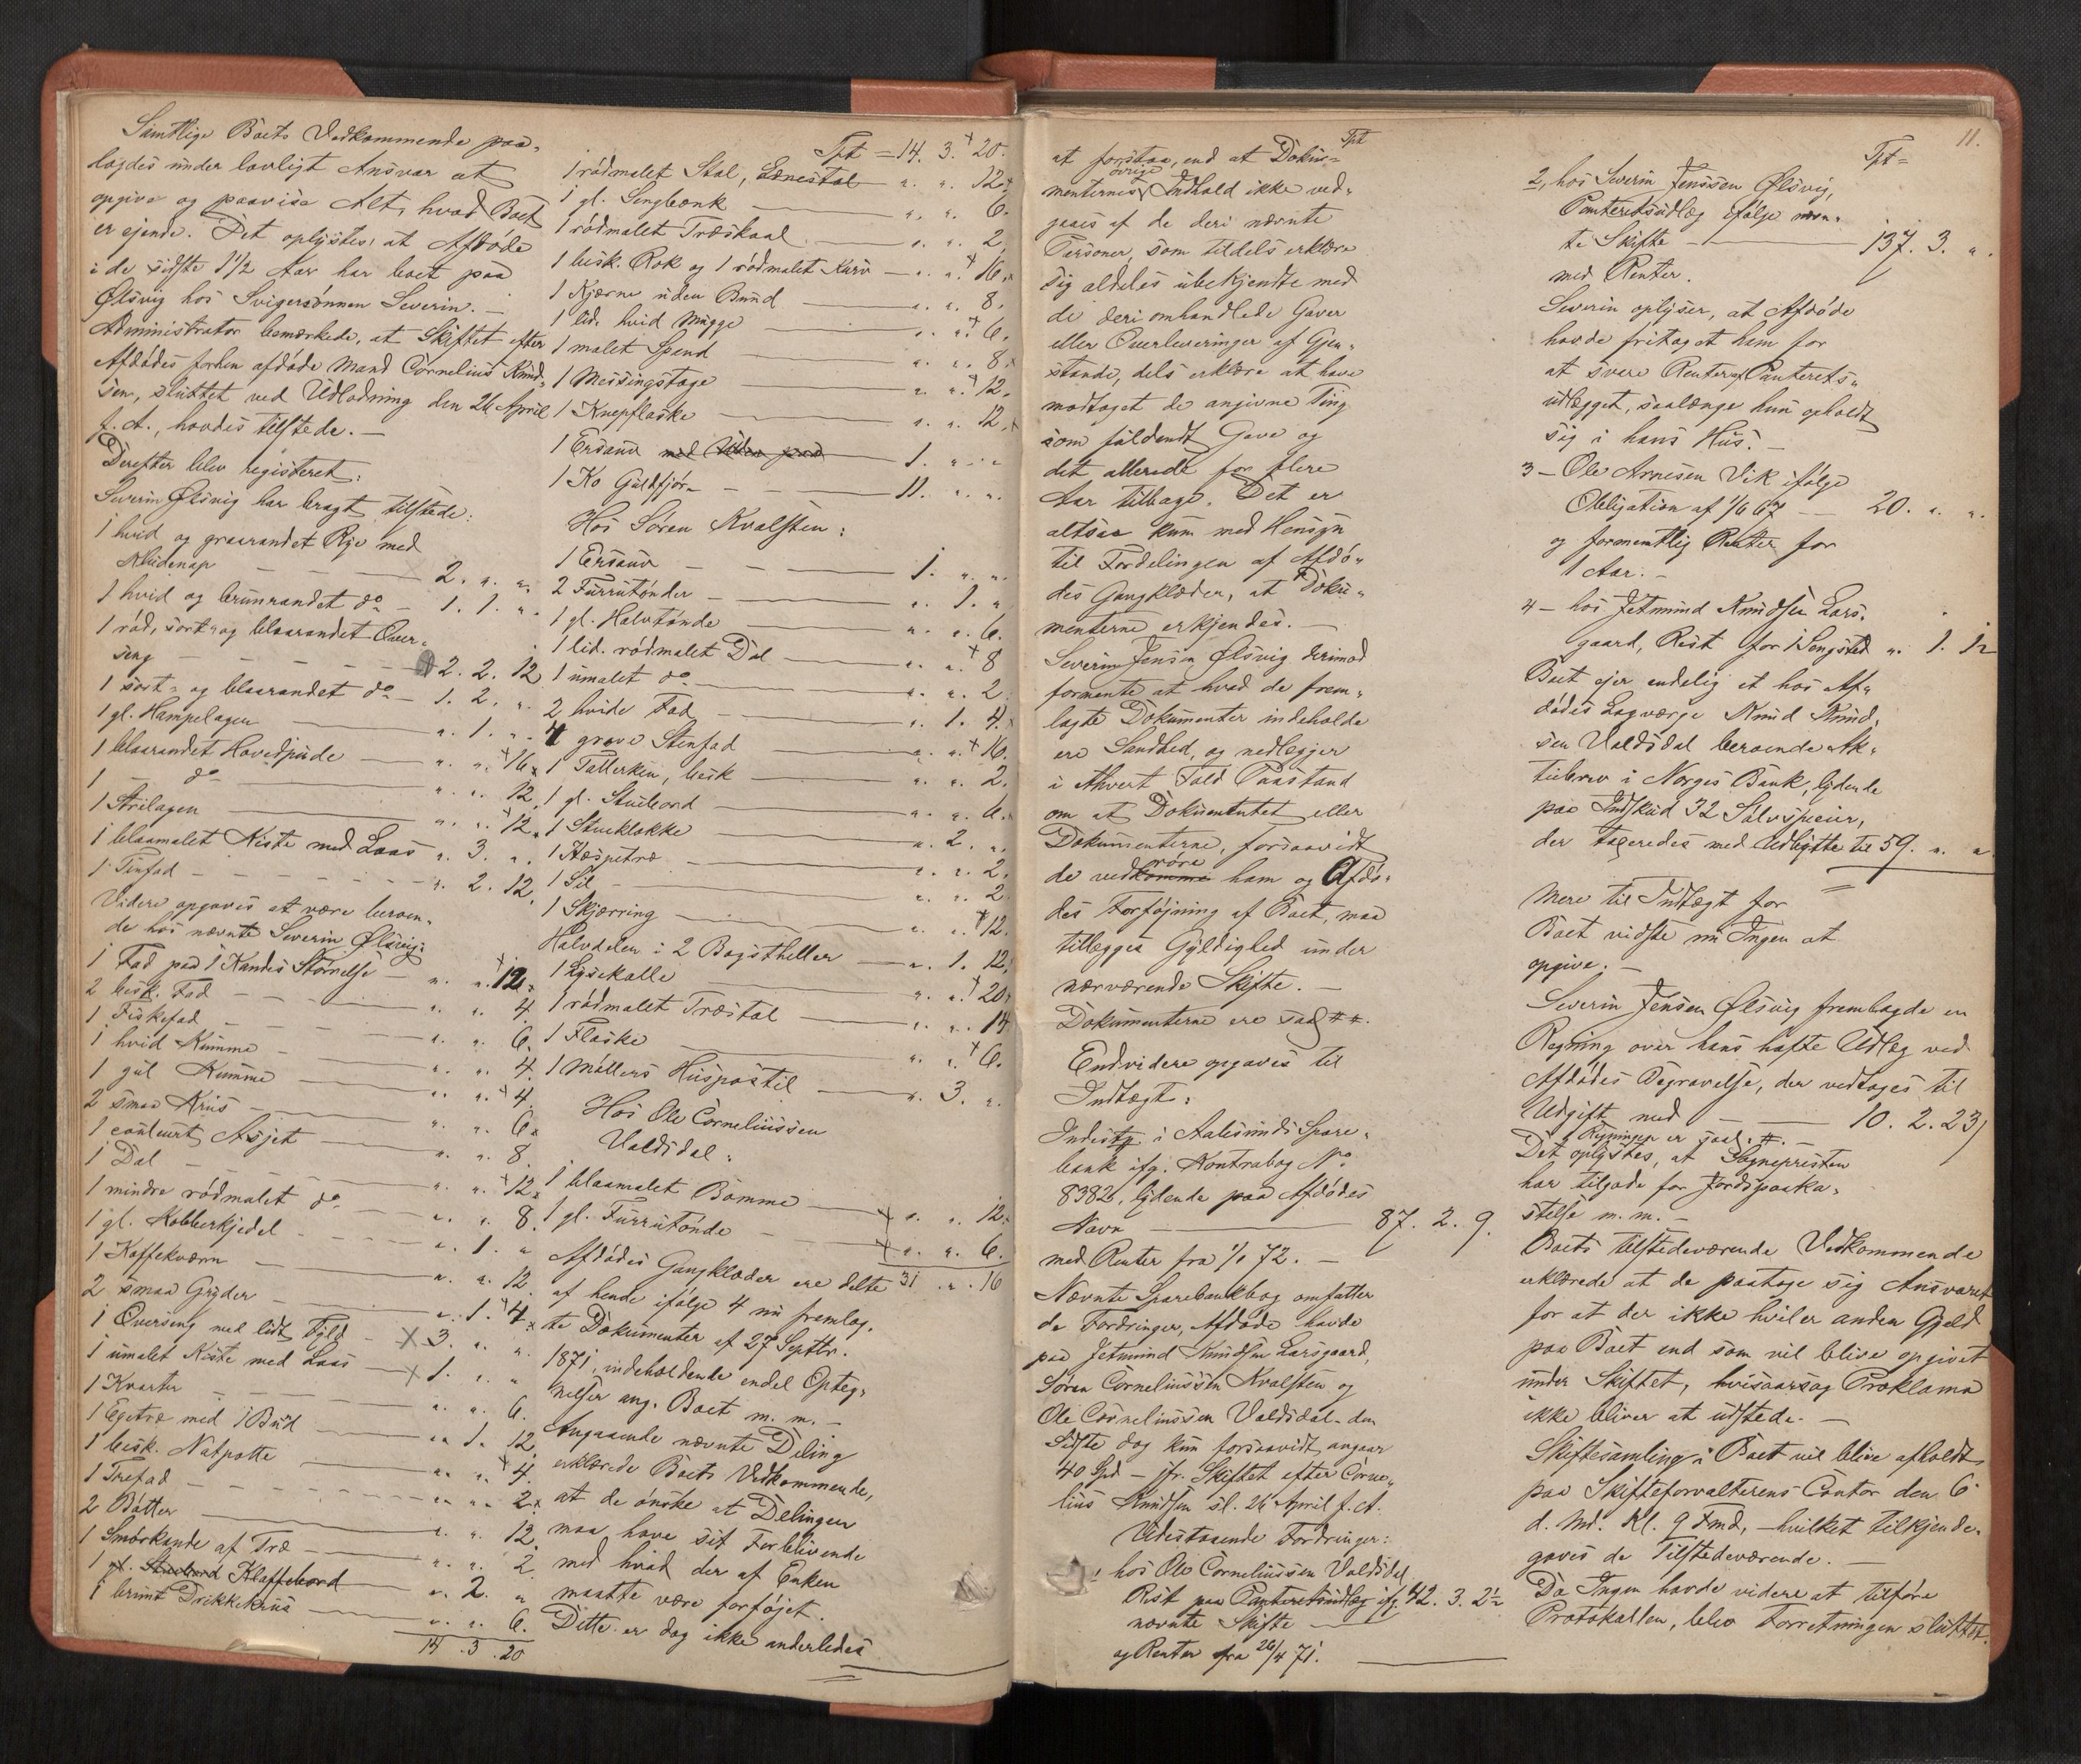 Samtlige Boets Vedkommende paa-
lagdes under lovligt Ansvar at
opgive og paavise Alt, hvad Boet
er ejende. Det oplystes, at Afdøde
i de sidste 1 1/2 Aar har boet paa
Ølsvig hos Svigersønnen Severin. -
Administrator bemærkede, at Skiftet efter
Afdødes forhen afdøde Mand Cornelius Knud-
sen, sluttet ved Udlodning den 26 April
f. A., havdes tilstede. -
Derefter blev registeret:
Severin Ølsvig har bragt tilstede:
1 hvid og graarandet Rye med
Skindenap - 2. " "
1 hvid og brunrandet do - 1. 1. "
1 rød, sort- og blaarandet Over-
seng - 2. 2. 12
1 sort- og blaarandet do - 1. 2. "
1 gl. Hampelagen - " 1. "
1 blaarandet Hovedpude - " " 16
1 do - " " 12
1 Strilagen - " " 12
1 blaamalet Kiste med Laas " 3. "
1 Tinfad - " 2. 12
Videre opgaves at være beroen-
de hos nævnte Severin Ølsvig:
1 Fad paa 1 Kandes Størrelse - " " 12
2 besk. Fad - " " 4
1 Fiskefad - " " 6
1 hvid Kumme - " " 4
1 gul Kumme - " " 4
2 smaa Krus - " " 6
1 couleurt Asjet - " " 8
1 Dal - " " 12
1 mindre rødmalet do - " " 8
1 gl. Kobberkjedel - " 1. "
1 Kaffekværn - " " 12
2 smaa Gryder - " 1. 4
1 Overseng med lidt Fyld - 3. " "
1 umalet Kiste med Laas - 1. " "
1 Kvarter - " " 6
1 Egetræ med 1 Bund - " 1. 12
1 besk. Natpotte - " " 4
1 Trefad - " " 2
2 Bøtter - " " 12
1 Smørkande af Træ - " " 2
1 gl. Stuebord Klaffebord - " 2. "
1 brunt Drikkekrus - " " 6
14. 3. 20
Tpt = 14. 3. 20
1 rødmalet Stol, Lænestol - " " 12
1 gl. Sengbænk - " " 6
1 rødmalet Træskaal - " " 2
1 besk. Rok og 1 rødmalet Kurv - " " 16
1 Kjærne uden Bund - " " 8
1 lid. hvid Mugge - " " 6
1 malet Spand - " " 8
1 Messingstage - " " 12
1 Knepflaske - " " 12
1 Ersaud med Uden paa - 1. " "
1 Ko Guldfjør - 11. " "
Hos Søren Kvalsten:
1 Ersaud - 1. " "
2 Furrutønder - " 1. "
1 gl. Halvtønde - " " 6
1 lid. rødmalet Dal - " " 8
1 umalet do - " " 2
2 hvide Fad - " 1. 4
4 grove Stenfad - " " 16
1 Tallerken, besk - " " 2
1 gl. Stuebord - " " 6
1 Stueklokke - " 2. "
1 Hespetræ - " " 2
1 Sil - " " 2
1 Skjærring - " " 12
Halvdelen i 2 Bagstheller - " 1. 12
1 Lysekalle - " " 20
1 rødmalet Træstol - " " 14
1 Flaske - " " 6
1 Møllers Huspostil - " 3. "
Hos Ole Corneliussen
Valdsdal:
1 blaamalet Bomme - " " 12
1 gl. Furrutønde - " " 6
31 " 16
Afdødes Gangklæder ere delte
af hende ifølge 4 nu fremlag-
te Dokumenter af 27 Septbr.
1871, indeholdende endel Opteg-
nelser ang. Boet m. m. -
Angaaende nævnte Deling
erklærede Boets Vedkommende,
at de ønske at Delingen
maa have sit Forblivende
med hvad der af Enken
maatte være forføjet.
Dette er dog ikke anderledes
Tpt
at forstaa, end at Doku-
menternes øvrige Indhold ikke ved-
gaaes af de deri nævnte
Personer, som tildels erklære
sig aldeles ubekjendte med
de deri omhandlede Gaver
eller Overleveringer af Gjen-
stande, dels erklære at have
modtaget de angivne Ting
som fuldendt Gave og
det allerede for flere
Aar tilbage. Det er
altsaa kun med Hensyn
til Fordelingen af Afdø-
des Gangklæder, at Doku-
menterne erkjendes. -
Severin Jensen Ølsvig derimod
formente at hvad de frem-
lagte Dokumenter indeholde
ere Sandhed, og nedlægger
i ethvert Fald Paastand
om at Dokumentet eller
Dokumenterne, forsaavidt
de vedkomme røre ham og Afdø-
des Forføjning af Boet, maa
tillægges Gyldighed under
nærværende Skifte. -
Dokumenterne ere saal.
Endvidere opgaves til
Indtægt:
Indestg. i Aalesunds Spare-
bank ifg. Kontrabog No
8382, lydende paa Afdødes
Navn - 87. 2. 9.
med Renter fra 1/1 72. -
Nævnte Sparebankbog omfatter
de Fordringer, Afdøde havde
paa Jetmund Knudsen Larsgaard,
Søren Corneliussen Kvalsten og
Ole Corneliussen Valdsdal - den
Sidste dog kun forsaavidt angaar
40 Spd - jfr. Skiftet efter Corne-
lius Knudsen sl. 26 April f. A.
Udestaaende Fordringer:
1 hos Ole Corneliussen Valdsdal
Rest paa Panteretsudlæg ifg. 42. 3. 2 1/2
nævnte Skifte -
og Renter fra 26/4 71.
11.
Tpt =
2, hos Severin Jenssen Ølsvig,
Panteretsudlæg ifølge nævn-
te Skifte - 137. 3. "
med Renter.
Severin oplyser, at Afdøde
havde fritaget ham for
at svare Renter af Panterets-
udlægget, saalænge hun opholdt
sig i hans Hus. -
3 - Ole Arnesen Vik ifølge
Obligation af 1/6 67 - 20. " "
og formentlig Renter for
1 Aar. -
4 - hos Jetmund Knudsen Lars-
gaard, Rest for 1 Sengsted " 1. 12
Boet ejer endelig et hos Af-
dødes Lagværge Knud Knud-
sen Valdsdal beroende Ak-
tiebrev i Norges Bank, lydende
paa Indskud 32 Sølvspecier,
der taxeredes med Udbytte til 59. " "
Mere til Indtægt for
Boet vidste nu Ingen at
opgive. -
Severin Jensen Ølsvig fremlagde en
Regning over hans hafte Udlæg ved
Afdødes Begravelse, der vedtoges til
Udgift med - 10. 2. 23
Regningen er saal. -
Det oplystes, at Sognepresten
har tilgode for Jordspaaka-
stelse m. m. -
Boets tilstedeværende Vedkommende
erklærede at de paatage sig Ansvaret
for at der ikke hviler anden Gjæld
paa Boet end som vil blive opgivet
under Skiftet, hvisaarsag Proklama
ikke bliver at udstede. -
Skiftesamling i Boet vil blive afholdt
paa Skifteforvalterens Contor den 6
d. Md. Kl. 9 Fmd, - hvilket tilkjende-
gaves de Tilstedeværende. -
Da Ingen havde videre at tilføre
Protokollen, blev Forretningen sluttet.